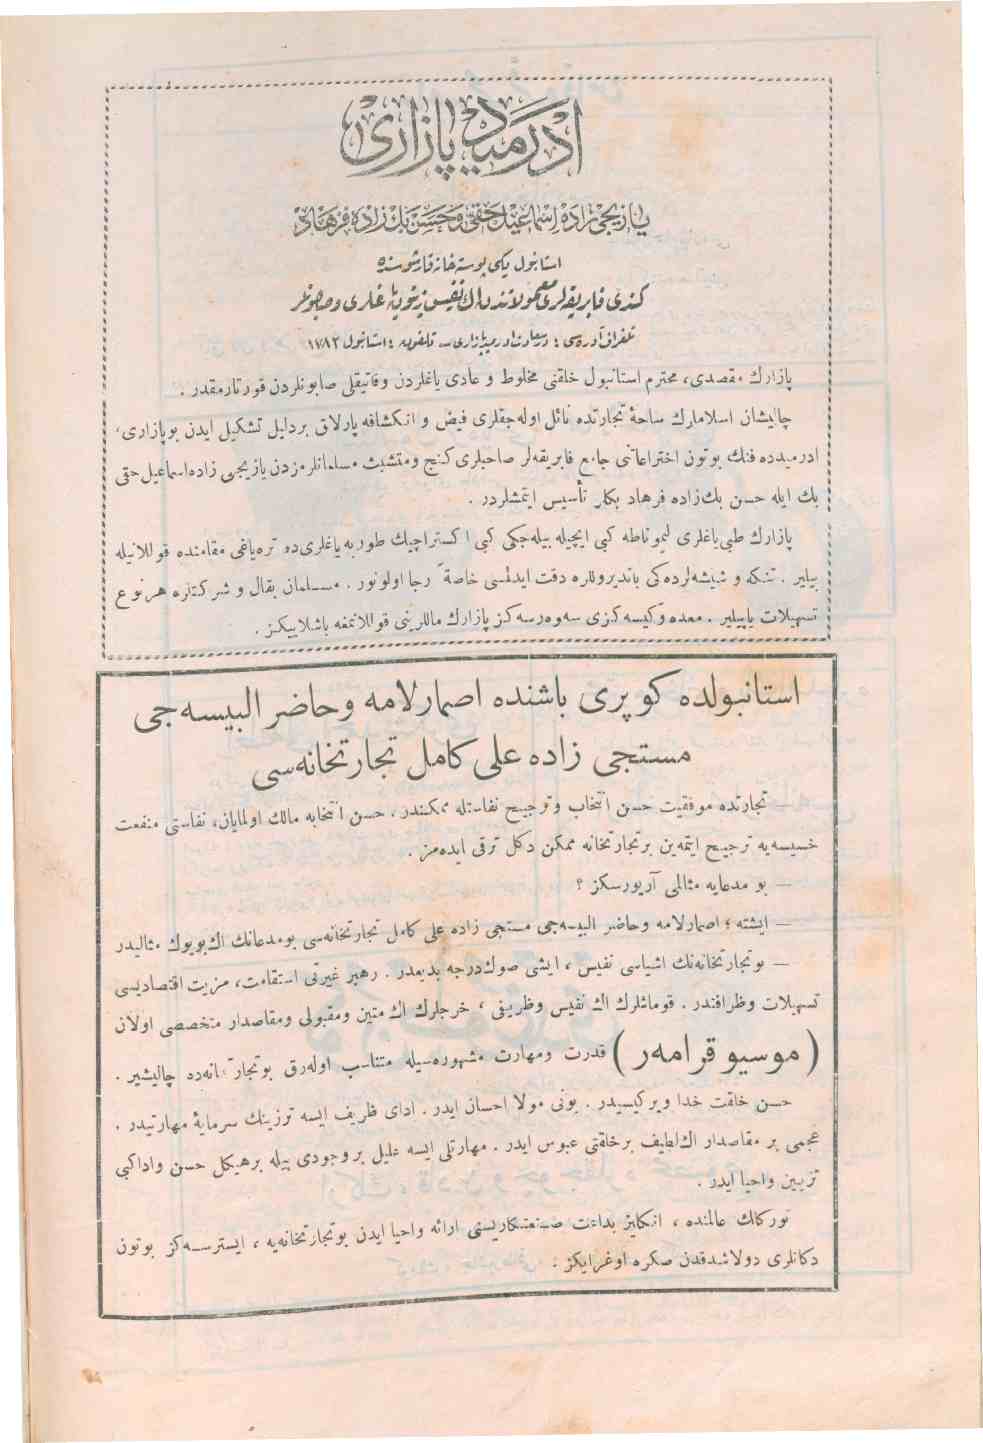 ادرميد پازاری
يازيجی زاده اسماعيل حقی و حسن بك زاده فرهاد
استانبول يكی پوسته خانه قارشوسنده
كندی فابريقه لری معمولاتندن اك نفيس زيتون ياغلری و صابونلر
تلغراف آدره سی : درسعادت ادرميد پازاری ــ تلفون : استانبول ١٧٨٢
پازارك مقصدی، محترم استانبول خلقنی مخلوط و عادی ياغلردن وفاتيقلی صابونلردن قورتارمقدر .
چاليشان اسلاملرك ساحۀ تجارتده نائل اوله جقلری فيض و انكشافه پارلاق بردليل تشكيل ايدن بوپازاری،
ادرميدده فنك بوتون اختراعاتنی جامع فابريقه لر صاحبلری كنج ومتشبث مسلمانلرمزدن يازيجی زاده اسماعيل حقی
بك ايله حسن بك زاده فرهاد بكلر تأسيس ايتمشلردر .
پازارك طبی ياغلری ليموناطه كبی ايچيله بيله جكی كبی اكستراچيك طوربه ياغلری ده تره ياغی مقامنده قوللانيله
بيلير . تنكه و شيشه لرده كی باندیروللره دقت ايدلمسی خاصةً رجا اولونور . مسلمان بقال و شركتلره هر نوع
تسهيلات ياپيلير . معده وكيسه كزی سه وه رسه كز پازارك ماللرينی قوللانمغه باشلاييكز .
استانبولده كوپری باشنده اصمارلامه وحاضر البيسه جی
مستجی زاده علی كامل تجارتخانه سی
— تجارتده موفقيت حسن انتخاب وترجيح نفاستله ممكندر. حسن انتخابه مالك اولمايان، نفاستی منفعت
خسيسه يه ترجيح ايتمه ين برتجارتخانه ممكن دكل ترقی ايده مز .
— بو مدعايه مثالمی آريورسكز ؟
— ايشته ؛ اصمارلامه وحاضر البيسه جی مستجی زاده علی كامل تجارتخانه سی بومدعانك اك بويوك مثاليدر
— بوتجارتخانه نك اشياسی نفيس ، ايشی صوك درجه بديعدر. رهبر غيرتی استقامت، مزيت اقتصاديسی
تسهيلات وظرافتدر . قوماشلرك اك نفيس وظريفی ، خرجلرك اك متين ومقبولی ومقاصدار متخصصی اولان
( موسيو قرامه ر ) قدرت ومهارت مشهوره سيله متناسب اوله رق بوتجارتخانه ده چاليشير .
حسن خلقت خدا ويركيسيدر . بونی مولا احسان ايدر . ادای ظريف ايسه ترزينك سرمايۀ مهارتيدر .
عجمی بر مقاصدار اك لطيف برخلقتی عبوس ايدر . مهارتلی ايسه عليل بروجودی بيله برهيكل حسن واداكبی
تزيين واحيا ايدر .
توركلك عالمنده ، انكليز بداعت صنعتكاريسنی ارائه واحيا ايدن بوتجارتخانه يه ، ايسترسه كز بوتون
دكانلری دولاشدقدن صكره اوغرايكز :